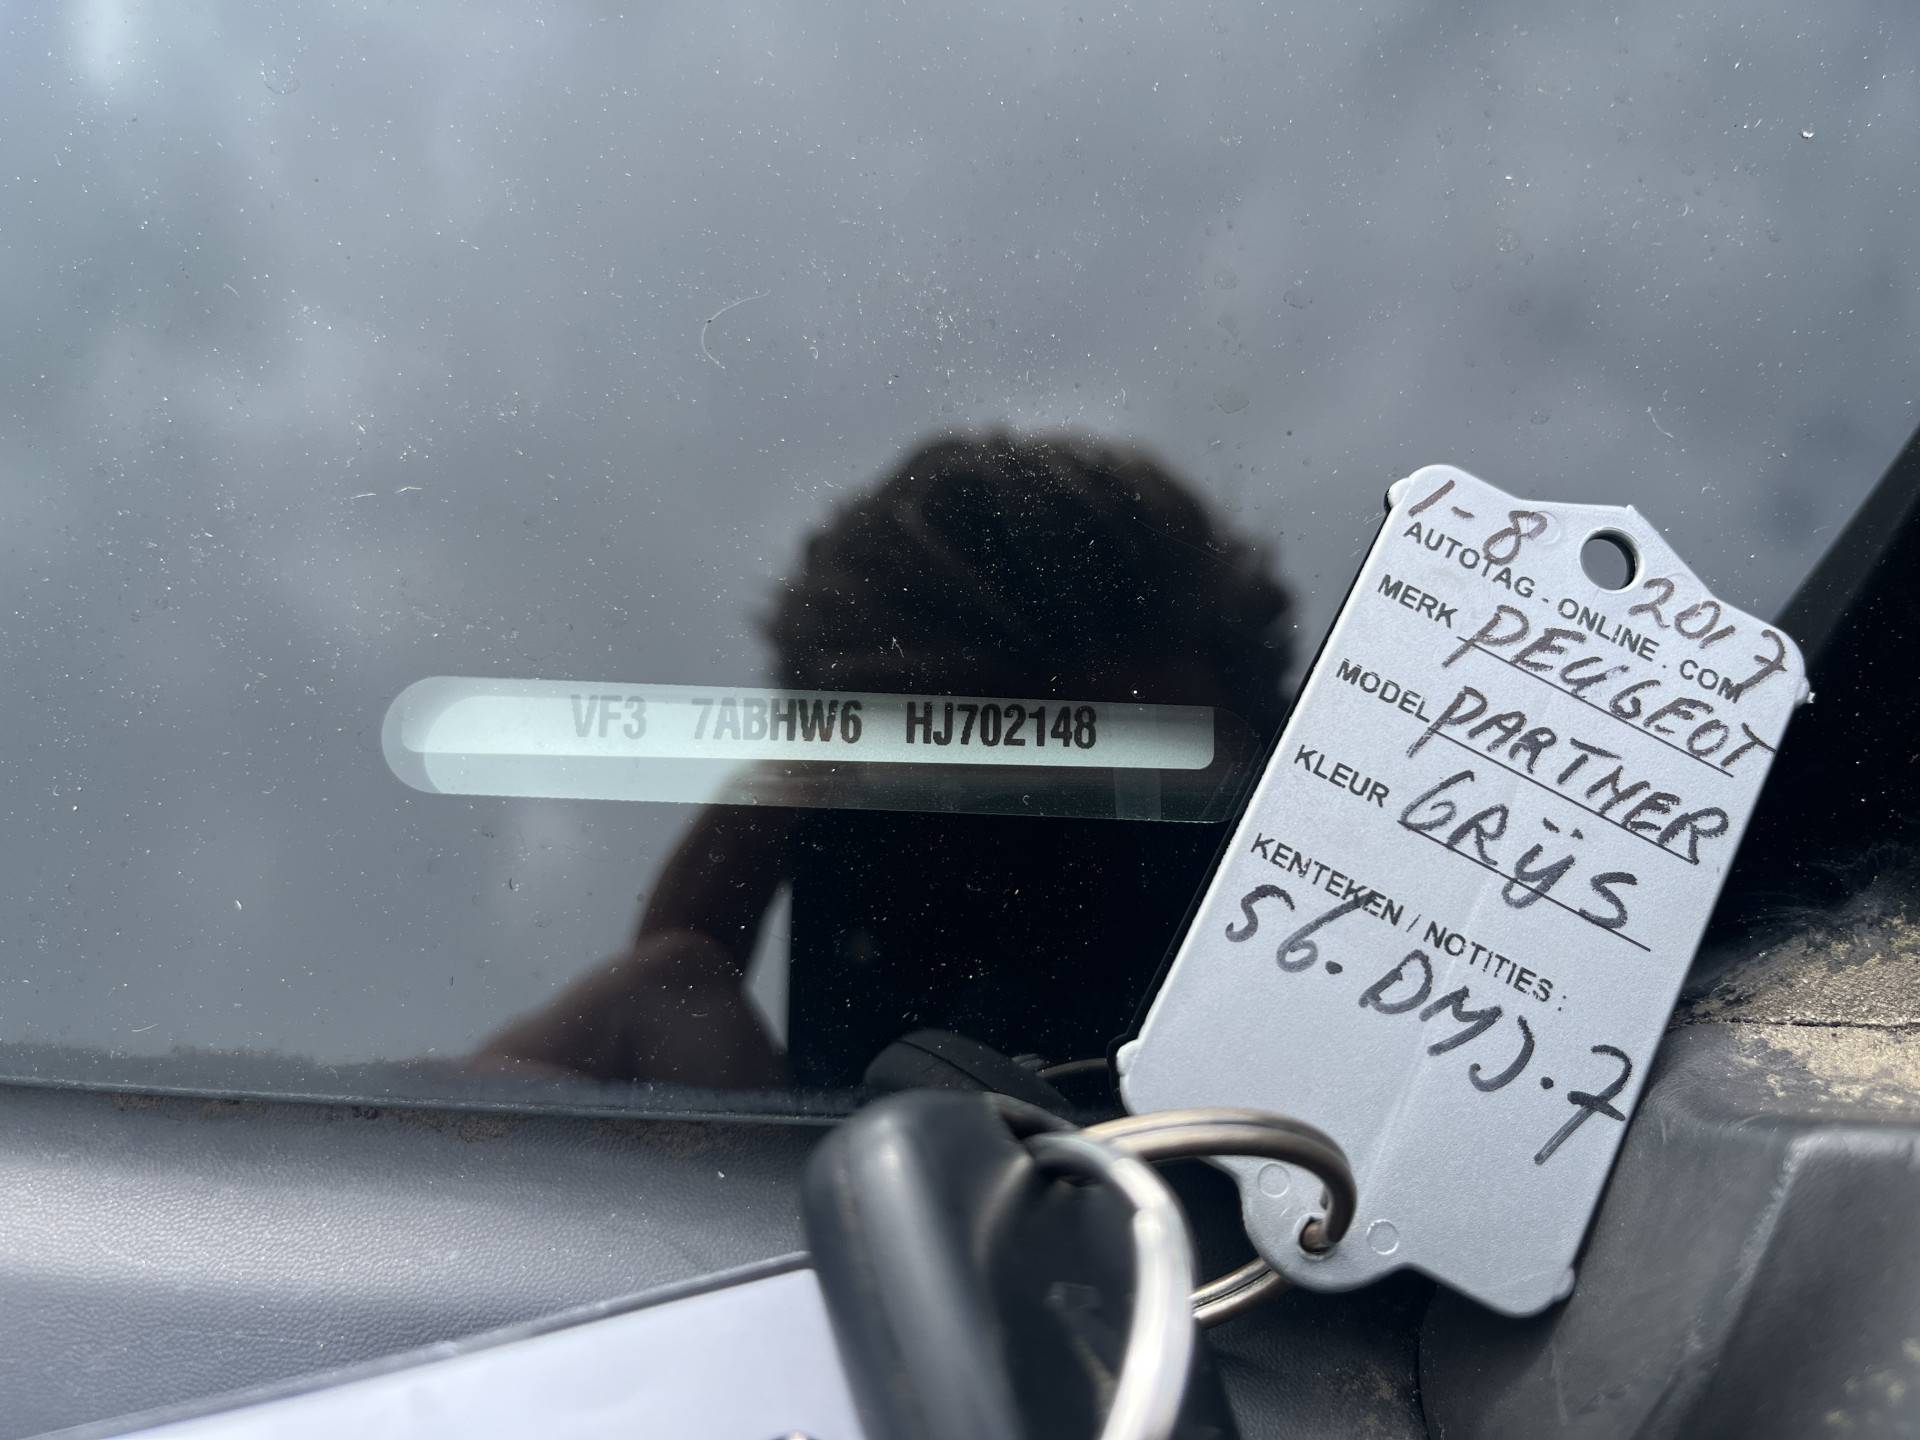 VF3 7ABHW6 HJ702148
1-8 2017
AUTOTAG-ONLINE.COM
MERK PEUGEOT
MODEL PARTNER
KLEUR GRIJS
KENTEKEN / NOTITIES:
56.DMJ.7